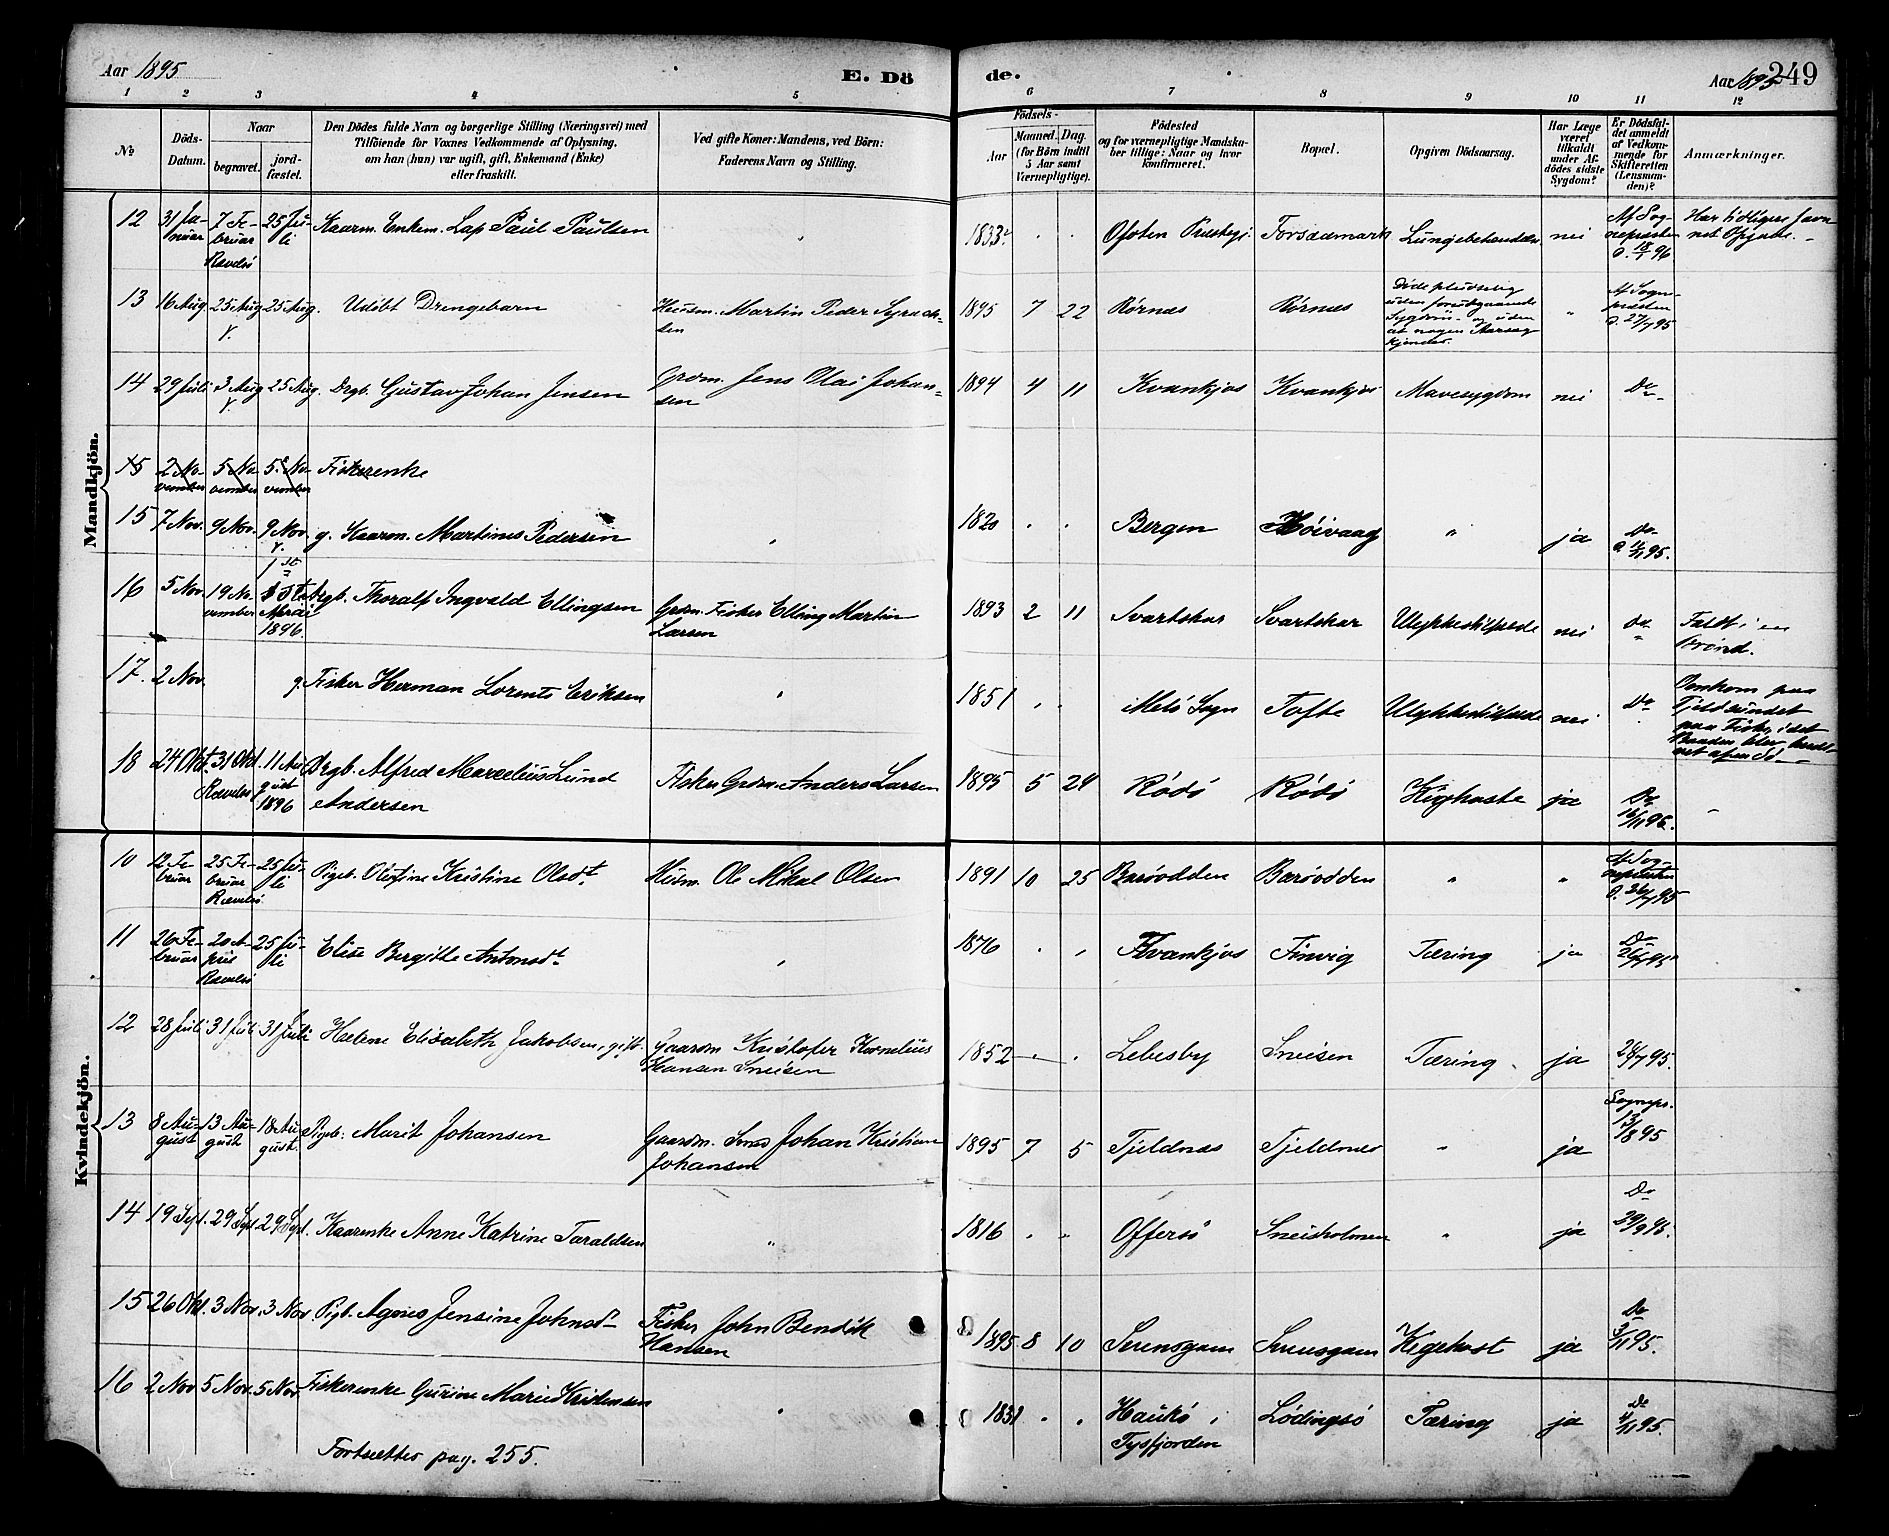 Aar 1895
E. Dö
de.
Aar 1895
249
1 2 3 4 5 6 7 8 9 10 11 12
№
Döds-
Datum.
Naar
begravet.
jord-
fæstet.
Den Dödes fulde Navn og borgerlige Stilling (Næringsvei) med
Tilföiende for Voxnes Vedkommende af Oplysning,
om han (hun) var ugift, gift, Enkemand (Enke)
eller fraskilt.
Ved gifte Koner: Mandens, ved Börn:
Faderens Navn og Stilling.
Födsels-
Aar
Maaned. Dag.
(for Börn indtil
5 Aar samt
Værnepligtige).
Födested
og for værnepligtige Mandska-
ber tillige: Naar og hvor
konfirmeret.
Bopæl.
Opgiven Dödsaarsag.
Har Læge
været
tilkaldt
under Af-
dödes sidste
Sygdom?
Er Dödsfal-
det anmeldt
af Vedkom-
mende for
Skifteretten
(Lensman-
den)?
Anmærkninger.
Mandkjön.
12 31 Ja-
nuar 7 Fe-
bruar
Rævelsö 25 Ju-
li Kaarm. Enkem. Lap Paul Paulsen 1833 Ofoten Forsaamark nei Af Sog-
nepresten
18/1 96 Har tidligere
13 16 Aug. 25 Aug. 25 Aug. Udöbt Drengebarn Husm. Martin Peder
sen 1895 7 22 Rörnæs Rörnæs Döde pludselig
uden forudgaaende
Sygdom og uden
at nogen Aarsag
kjendes. Af Sogne-
presten
27/7 95
14 29 Juli 3 Aug 25 Aug. Drgb. Gjustav Johan Jensen Grdm. Jens Olai Johan-
sen 1894 4 11 Kvankjos Kvankjos Mavesygdom nei Do
15 2 No-
vember 5 No-
vember 5 No-
vember Fiskerenke
15 7 Nov. 9 Nov. 9 Nov. g. Kaarm. Martinus Pedersen 1820 Bergen Höivaag ja Do
95.
16 5 Nov. 19 No-
vember
1896 Drgb. Thoralf Ingvald Ellingsen Grdm. Fisker Elling Martin
Larsen 1893 2 11 Svartskar Svartskar Ulykkestilfælde nei Do Faldt i en
Brönd.
17. 2 Nov. g. Fisker Herman Lorents Eriksen 1851 Melö Sogn Tofte Ulykkestilfælde nei Do Omkom paa
Tjeldsundet
paa Fiske, idet
Baaden blev
18 24 Okt. 31 Okt.
Rævelsö 11 Au-
gust
1896 Drgb. Alfred Marcelius Lund
Andersen Fisker Grdm. Anders Larsen 1895 5 24 Rödö Rödö Kighoste ja Do
Kvindekjön.
10 12 Fe-
bruar 25 Fe-
bruar
Rævelsö 25 Ju-
li Pigeb. Olestine Kristine Olsdt. Husm. Ole Mikal Olsen 1891 10 25 Barövdden Barövdden Af Sog-
nepresten
26/7 95
11 26 Fe-
bruar 20 A-
pril
Rævelsö 25 Ju-
li Elise Bergitte Antonsdt. 1876 Kvankjos Finvig Tæring ja Do
12 28 Juli 31 Juli 31 Juli Helene Elisabeth Jakobsen, gift. Gaardm Kristofer Kornelius
Hansen Sneisen 1852 Lebesby Sneisen Tæring ja 95.
13 8 Au-
gust 13 Au-
gust 18 Au-
gust. Pigeb. Marit Johansen Gaardm. Johan Kristian
Johansen 1895 7 5 Tjeldnæs Tjeldnæs ja Sognepr.
13/8 95
14 19 Sept. 29 Sept. 29 Sept. Kaarenke Anne Katrine Taraldsen 1816 Offersö Sneisholmen ja Do
29/9 95.
15 26 Okt. 3 Nov. 3 Nov. Pigb. Agnes Jensine Johnsdt Fisker John Bendik
Hansen 1895 8 10 Kigehost ja Do
3/11 95.
16 2 Nov 5 Nov. 5 Nov. Fiskerenke Gurine Marie Kristensen 1831 Haukö i
Tysfjorden Lödingsö Tæring ja Do
4/11 95.
Fortsættes pag. 255.